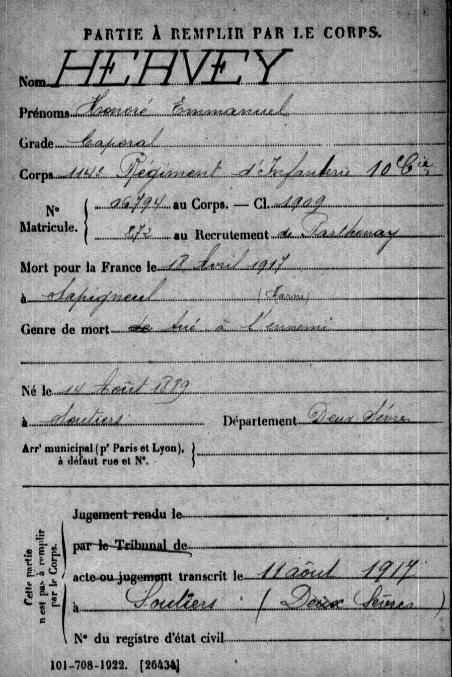 PARTIE À REMPLIR PAR LE CORPS.
Nom HERVEY
Prénoms Honoré Emmanuel
Grade Caporal
Corps 114e Régiment d'Infanterie 10e Cie
N° Matricule. { 06794 au Corps. — Cl. 1909
872 au Recrutement de Parthenay
Mort pour la France le 18 Avril 1917
à Sapigneul (Marne)
Genre de mort tué à l'ennemi
Né le 14 Août 1889
à Soutiers Département Deux Sèvres
Arrt municipal (pr Paris et Lyon),
à défaut rue et N°.
Cette partie
n'est pas à remplir
par le Corps.
Jugement rendu le
par le Tribunal de
acte ou jugement transcrit le 11 août 1917
à Soutiers (Deux Sèvres)
N° du registre d'état civil
101-708-1922. [26434]